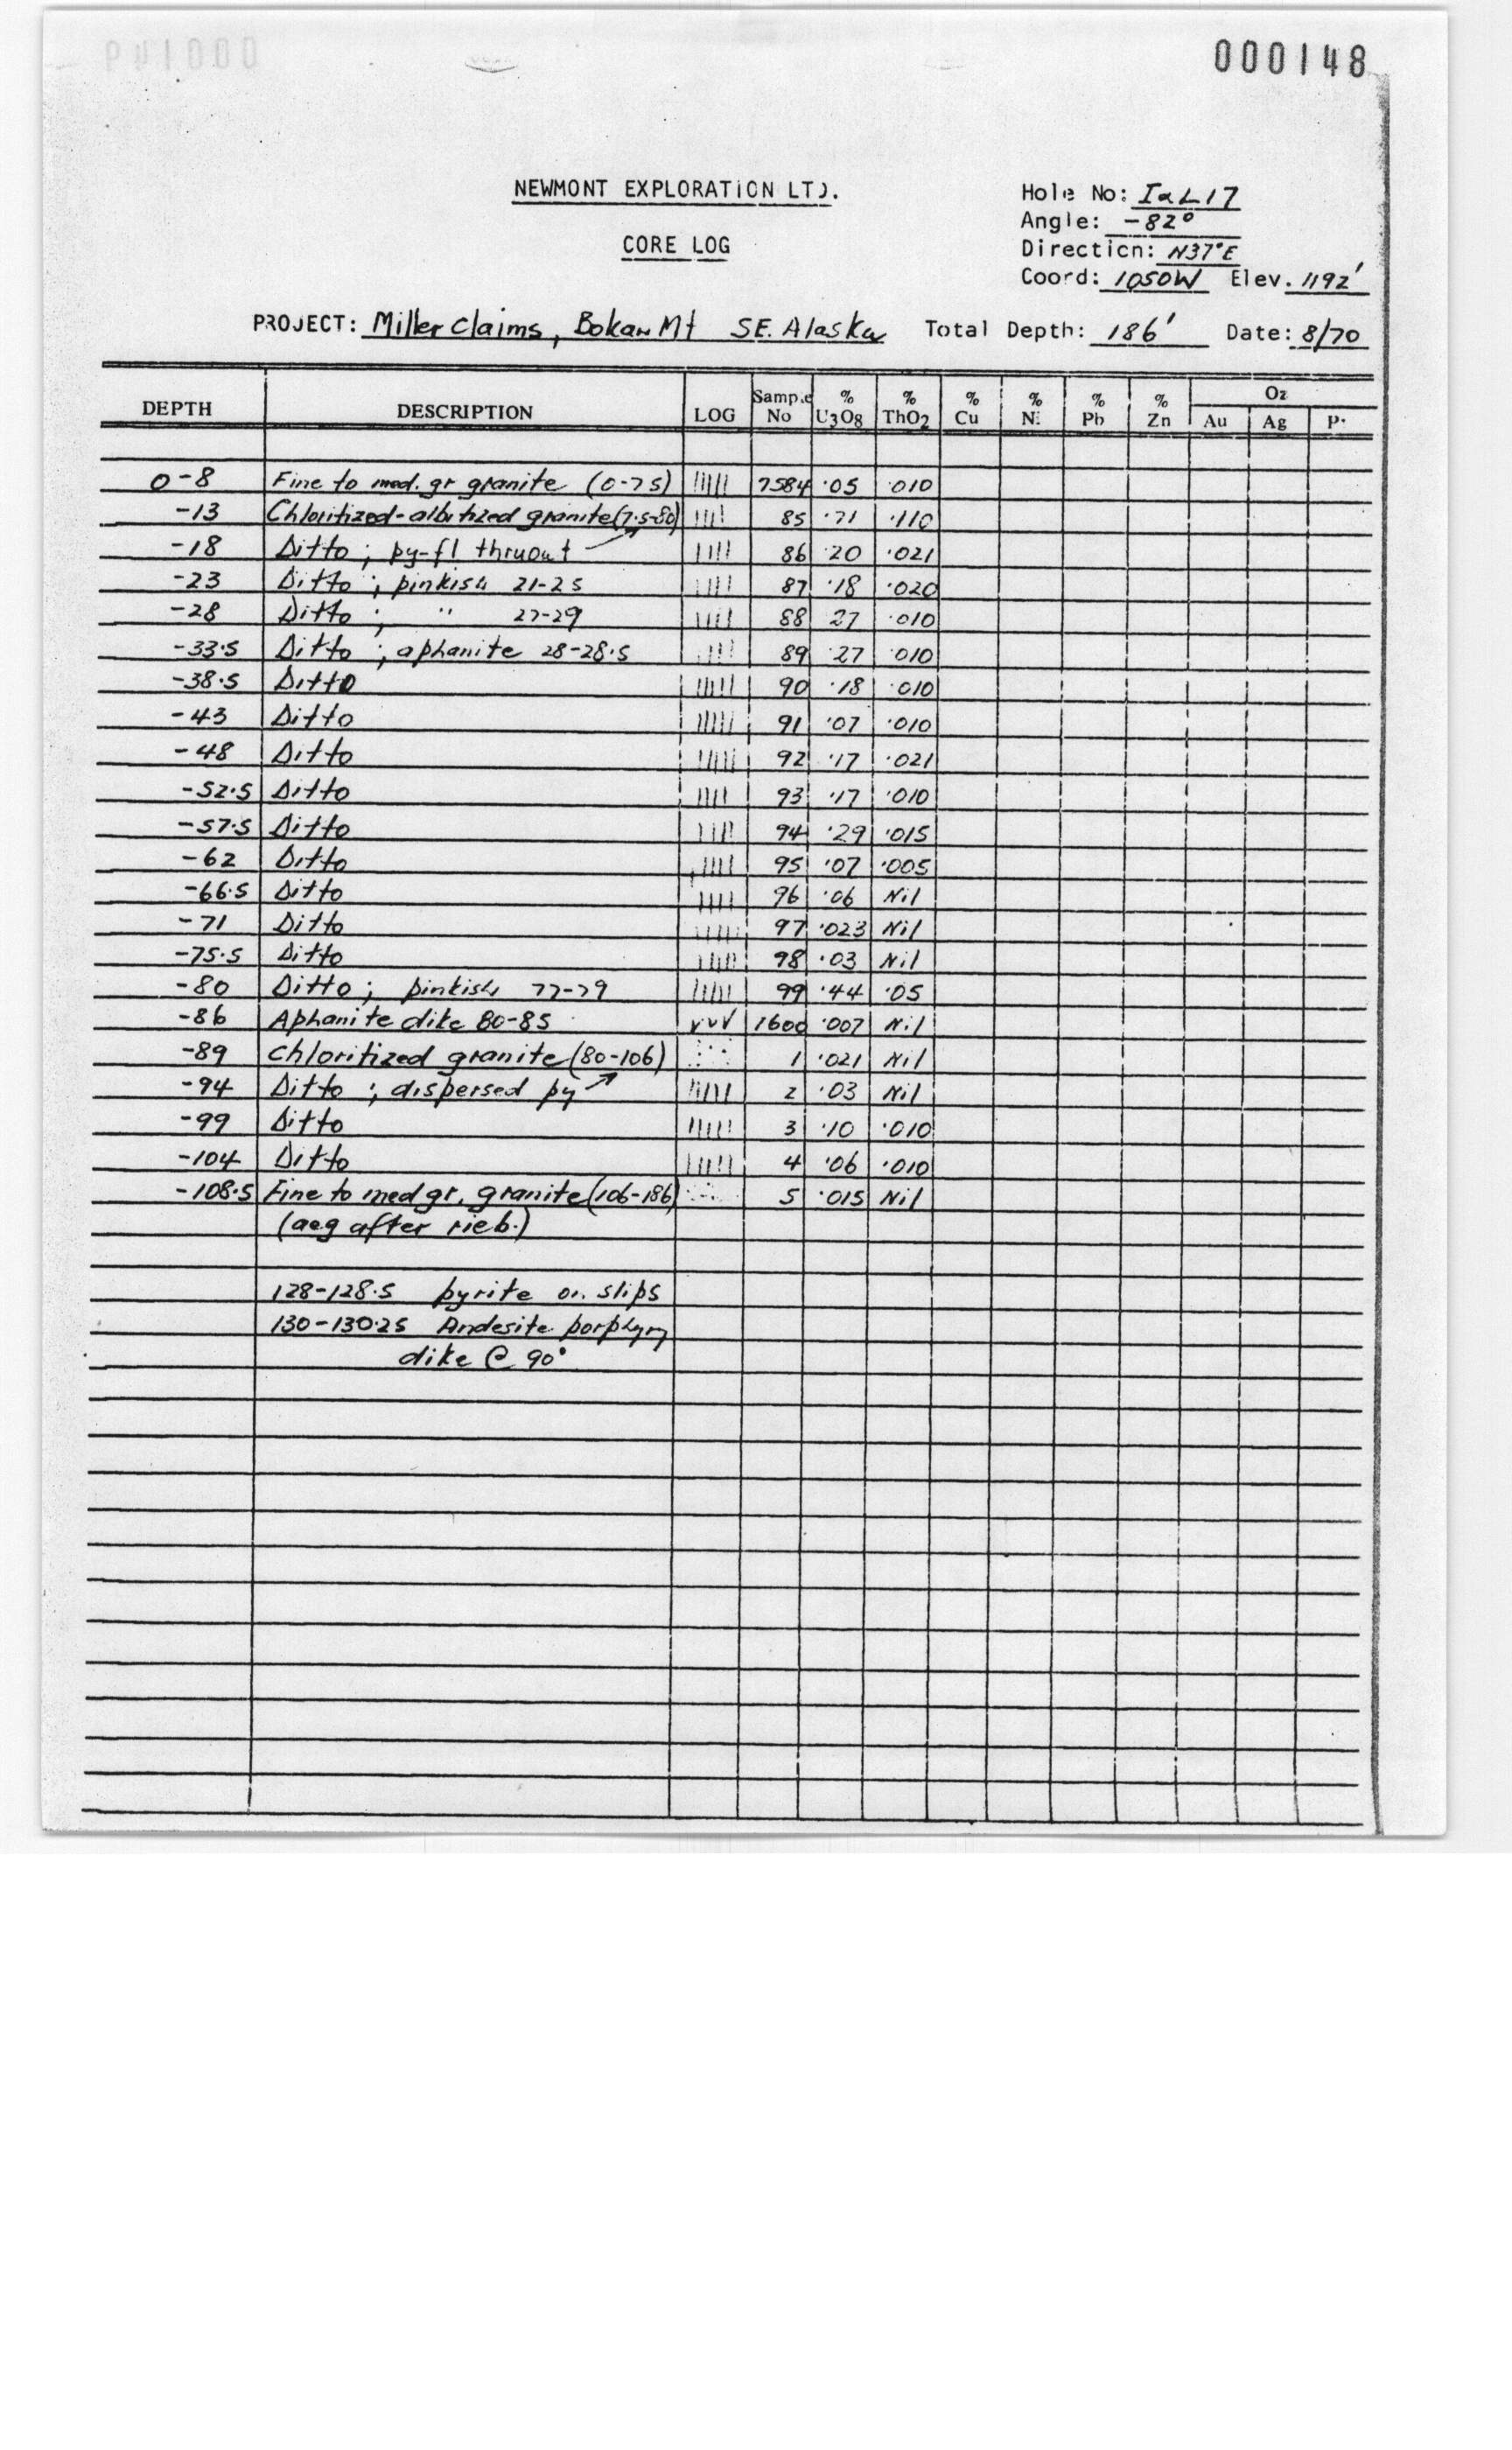 000148
NEWMONT EXPLORATION LTD.
CORE LOG
Hole No: IaL17
Angle: -82°
Direction: N37°E
Coord: 1050W Elev. 1192'
PROJECT: Miller Claims, Bokan Mt SE. Alaska Total Depth: 186' Date: 8/70
DEPTH DESCRIPTION LOG Sample No % U3O8 % ThO2 % Cu % Ni % Pb % Zn Oz Au Ag
0-8 Fine to med. gr granite (0-7.5) 7584 .05 .010
-13 Chloritized-albitized granite (7.5-80) 85 .71 .110
-18 Ditto; py-fl thruout 86 .20 .021
-23 Ditto; pinkish 21-25 87 .18 .020
-28 Ditto; " 27-29 88 27 .010
-33.5 Ditto; aphanite 28-28.5 89 .27 .010
-38.5 Ditto 90 .18 .010
-43 Ditto 91 .07 .010
-48 Ditto 92 .17 .021
-52.5 Ditto 93 .17 .010
-57.5 Ditto 94 .29 .015
-62 Ditto 95 .07 .005
-66.5 Ditto 96 .06 Nil
-71 Ditto 97 .023 Nil
-75.5 Ditto 98 .03 Nil
-80 Ditto; pinkish 77-79 99 .44 .05
-86 Aphanite dike 80-85 1600 .007 Nil
-89 Chloritized granite (80-106) 1 .021 Nil
-94 Ditto; dispersed py 2 .03 Nil
-99 Ditto 3 .10 .010
-104 Ditto 4 .06 .010
-108.5 Fine to med gr. granite (106-186) 5 .015 Nil
(aeg after rieb.)
128-128.5 pyrite on slips
130-130.25 Andesite porphyry
dike @ 90°